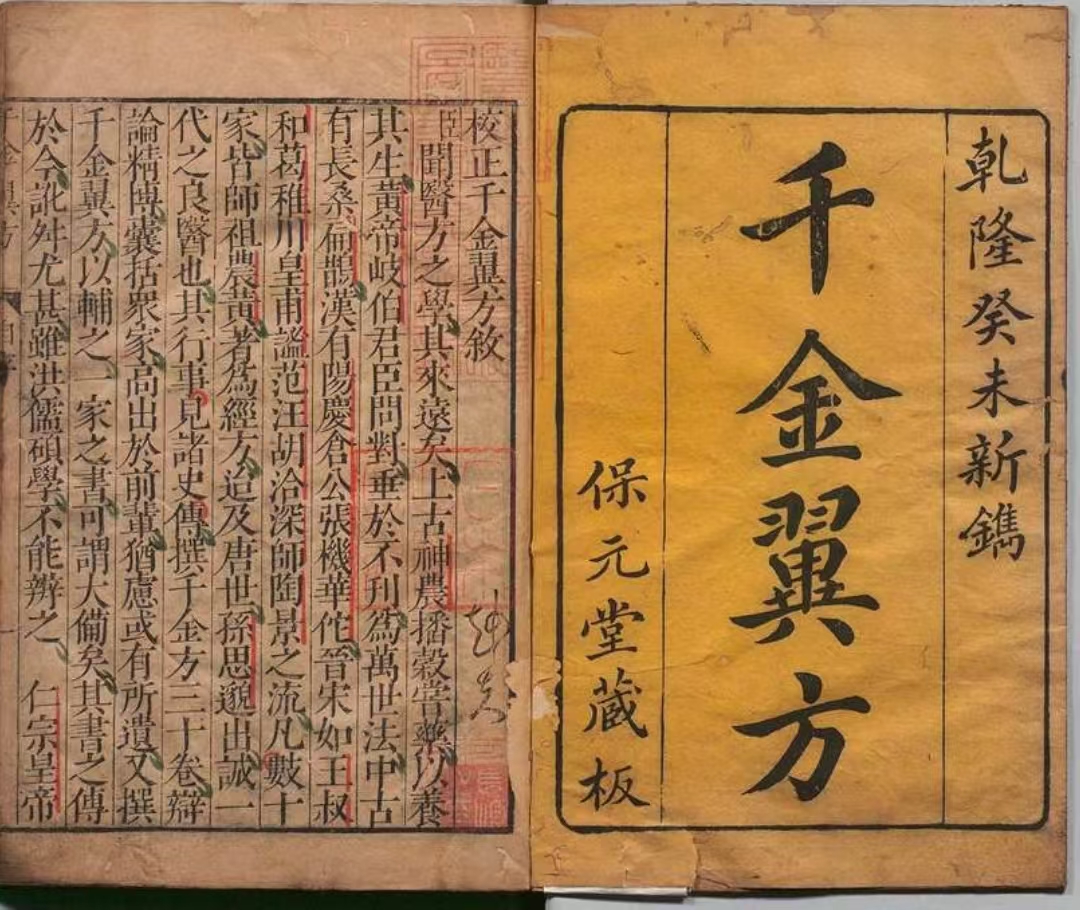 乹隆癸未新鐫
千金翼方
保元堂蔵板
校正千金翼方敘
臣聞醫方之學其來遠矣上古神農播穀嘗藥以養
其生黃帝岐伯君臣問對垂於不刋為萬世法中古
有長桑扁鵲漢有陽慶倉公張機華佗晉宋如王叔
和葛稚川皇甫謐范汪胡洽深師陶景之流凡數十
家皆師祖農黃著為經方迨及唐世孫思邈出誠一
代之良醫也其行事見諸史傳撰千金方三十卷辯
論精博囊括眾家高出於前輩猶慮或有所遺又撰
千金翼方以輔之一家之書可謂大備矣其書之傳
於今訛舛尤甚雖洪儒碩學不能辨之 仁宗皇帝